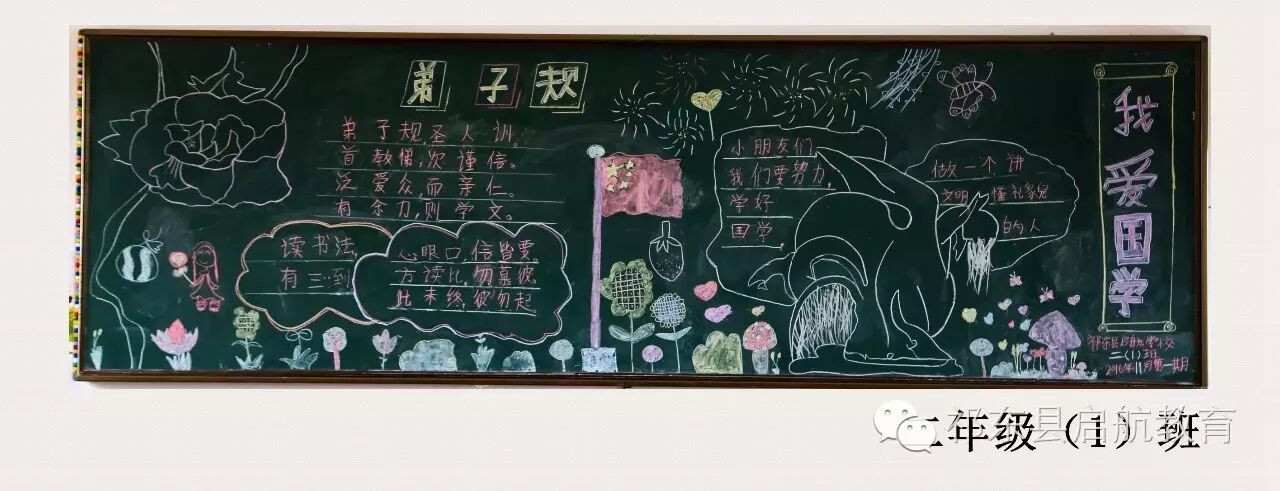 弟子规
弟子规,圣人训。
首孝悌,次谨信。
泛爱众,而亲仁。
有余力,则学文。
读书法,
有三到
心眼口,信皆要。
方读此,勿慕彼。
此未终,彼勿起
小朋友们,
我们要努力,
学好
国学,
做一个讲
文明 懂礼貌
的人
我爱国学
祁东县启航学校
二(1)班
2016年11月第一期
二年级（1）班
祁东县启航教育